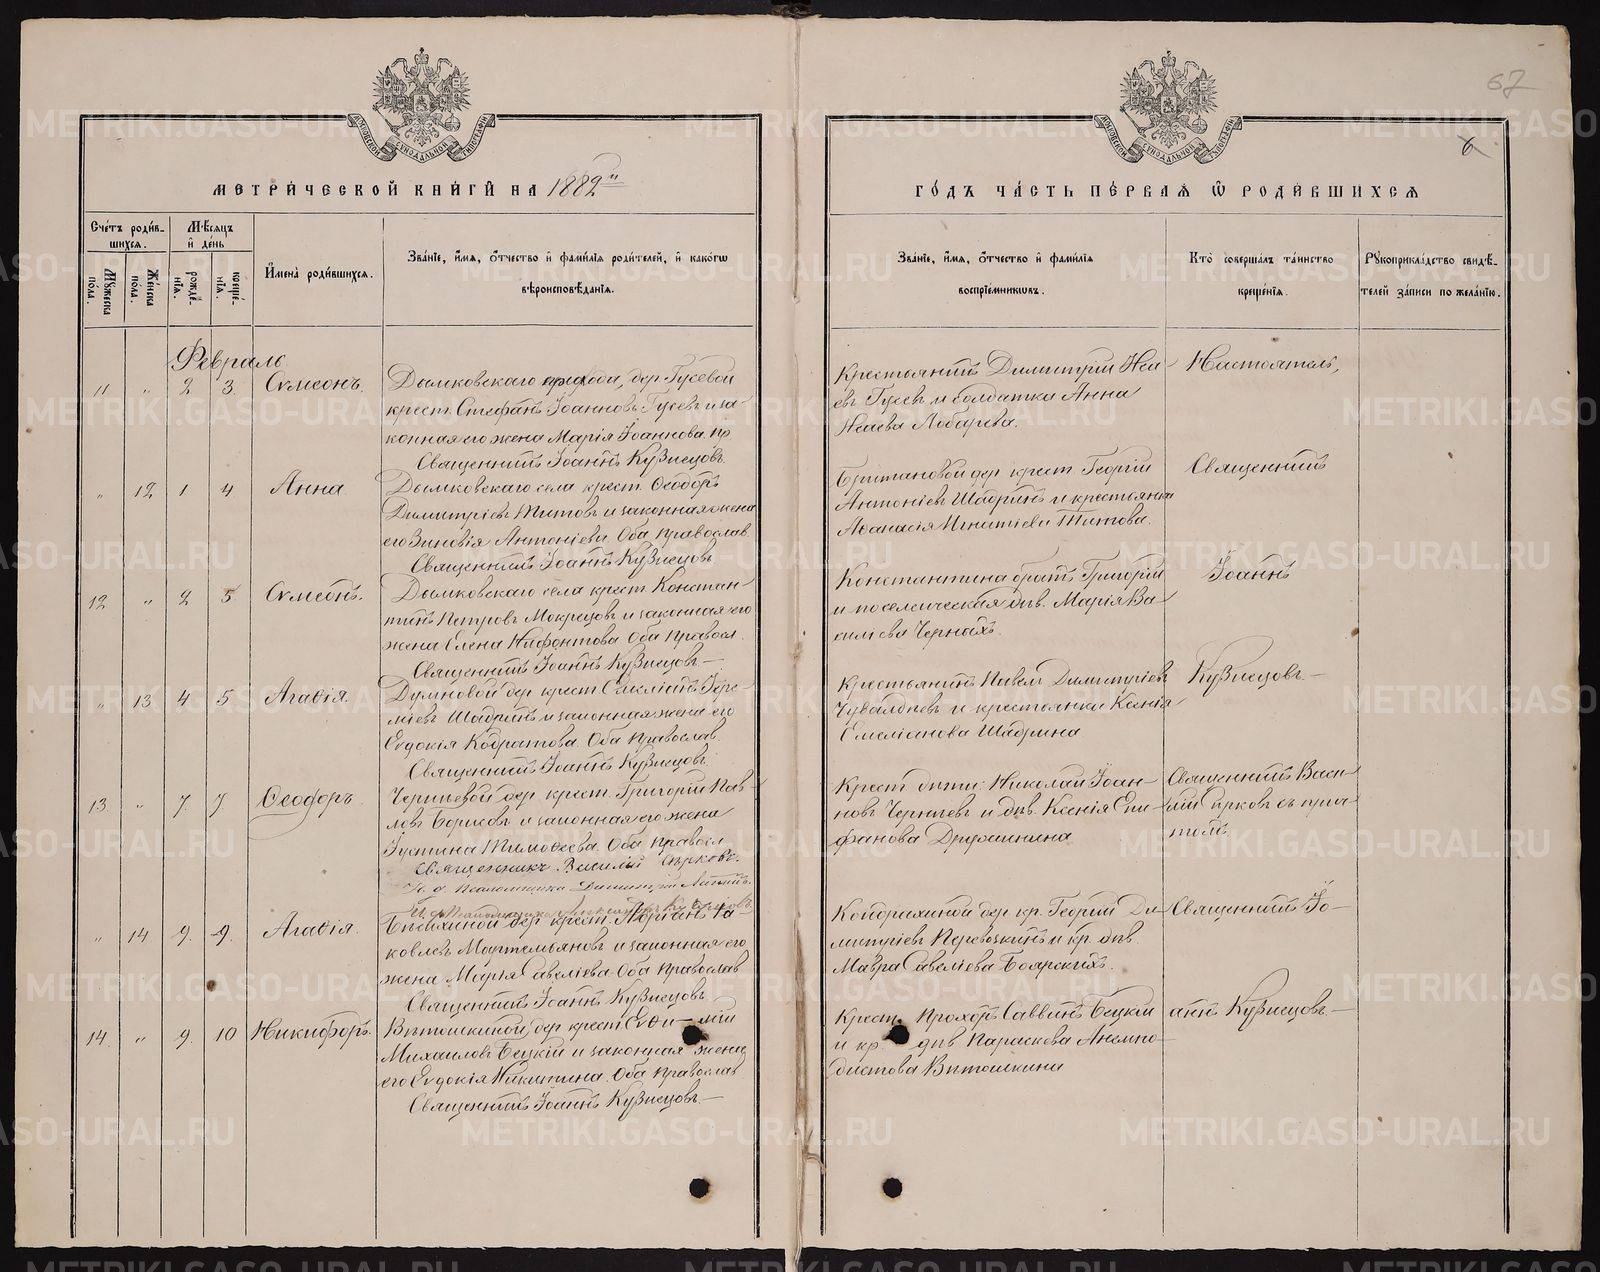 67
6
МЕТРИЧЕСКОЙ КНИГИ НА 1882й
ГОДЪ ЧАСТЬ ПЕРВАЯ Ѡ РОДИВШИХСЯ
Счетъ родив-
шихся.
Мѣсяцъ
и день
Мужеска
пола.
Женска
пола.
рожде-
нія.
креще-
нія.
Имена родившихся.
Званіе, имя, отчество и фамилія родителей, и какогѡ
вѣроисповѣданія.
Званіе, имя, отчество и фамилія
воспріемниковъ.
Кто совершалъ таинство
крещенія.
Рукоприкладство свидѣ-
телей записи по желанію.
Февраль
11 " 2 3 Сѵмеонъ.
Дымковскаго прихода, дер. Гусевой
крест. Стефанъ Іоанновъ Гусевъ и за-
конная его жена Марія Іоаннова. пр.
Священникъ Іоаннъ Кузнецовъ
Крестьянинъ Димитрій Иса-
евъ Гусевъ и солдатка Анна
Исаева Лобарева.
Настоятель,
" 12 1 4 Анна
Дымковскаго села крест. Ѳеодоръ
Димитріевъ Титовъ и законная жена
его Зиновія Антоніева. Оба Православ.
Священникъ Іоаннъ Кузнецовъ
дер. крест. Георгій
Антоніевъ Шадринъ и крестьянка
Аѳанасія Игнатіева Титова.
Священникъ
12 " 2 5 Сѵмеонъ.
Дымковскаго села крест. Констан-
тинъ Петровъ Мокрецовъ и законная его
жена Елена Нифонтова. Оба Правосл.
Священникъ Іоаннъ Кузнецовъ.—
Константина братъ Григорій
и поселенческая дѣв. Марія Ва-
силіева Черныхъ.
Іоаннъ
" 13 4 5 Агаѳія.
Думновой дер. крест. Емеліанъ
Шадринъ и законная жена его
Евдокія Кодратова. Оба Православ.
Священникъ Іоаннъ Кузнецовъ.
Крестьянинъ Павелъ Димитріевъ
и крестьянка Ксенія
Емеліанова Шадрина
Кузнецовъ.—
13 " 7 7 Ѳеодоръ.
дер. крест. Григорій Пав-
ловъ Борисовъ и законная его жена
Іустина Тимоѳеева. Оба Правосл.
Священникъ Василій Сирковъ.
И. д. Псаломщика Димитрій
И. д. Псаломщика Александръ Кузнецовъ.
Крест. дѣти: Николай Іоан-
новъ и дѣв. Ксенія Епи-
фанова
Священникъ Васи-
лій Сирковъ съ при-
томъ.
" 14 9 9 Агаѳія.
дер. крест. Адріанъ Іа-
ковлевъ Мартемьяновъ и законная его
жена Марія Савеліева. Оба Православ.
Священникъ Іоаннъ Кузнецовъ
дер. кр. Георгій Ди-
митріевъ Перевозкинъ и кр. дѣв.
Мавра Савеліева Боярскихъ.
Священникъ Іо-
14 " 9 10 Никифоръ.
Вѣтошкиной дер. крест. Евѳи-мій
Михаиловъ Бецкій и законная жена
его Евдокія Никитина. Оба Православ.
Священникъ Іоаннъ Кузнецовъ.—
Крест. Прохоръ Саввинъ Бецкій
и кр. дѣв. Параскева Анемпо-
дистова Вѣтошкина
аннъ Кузнецовъ.—
METRIKI.GASO-URAL.RU